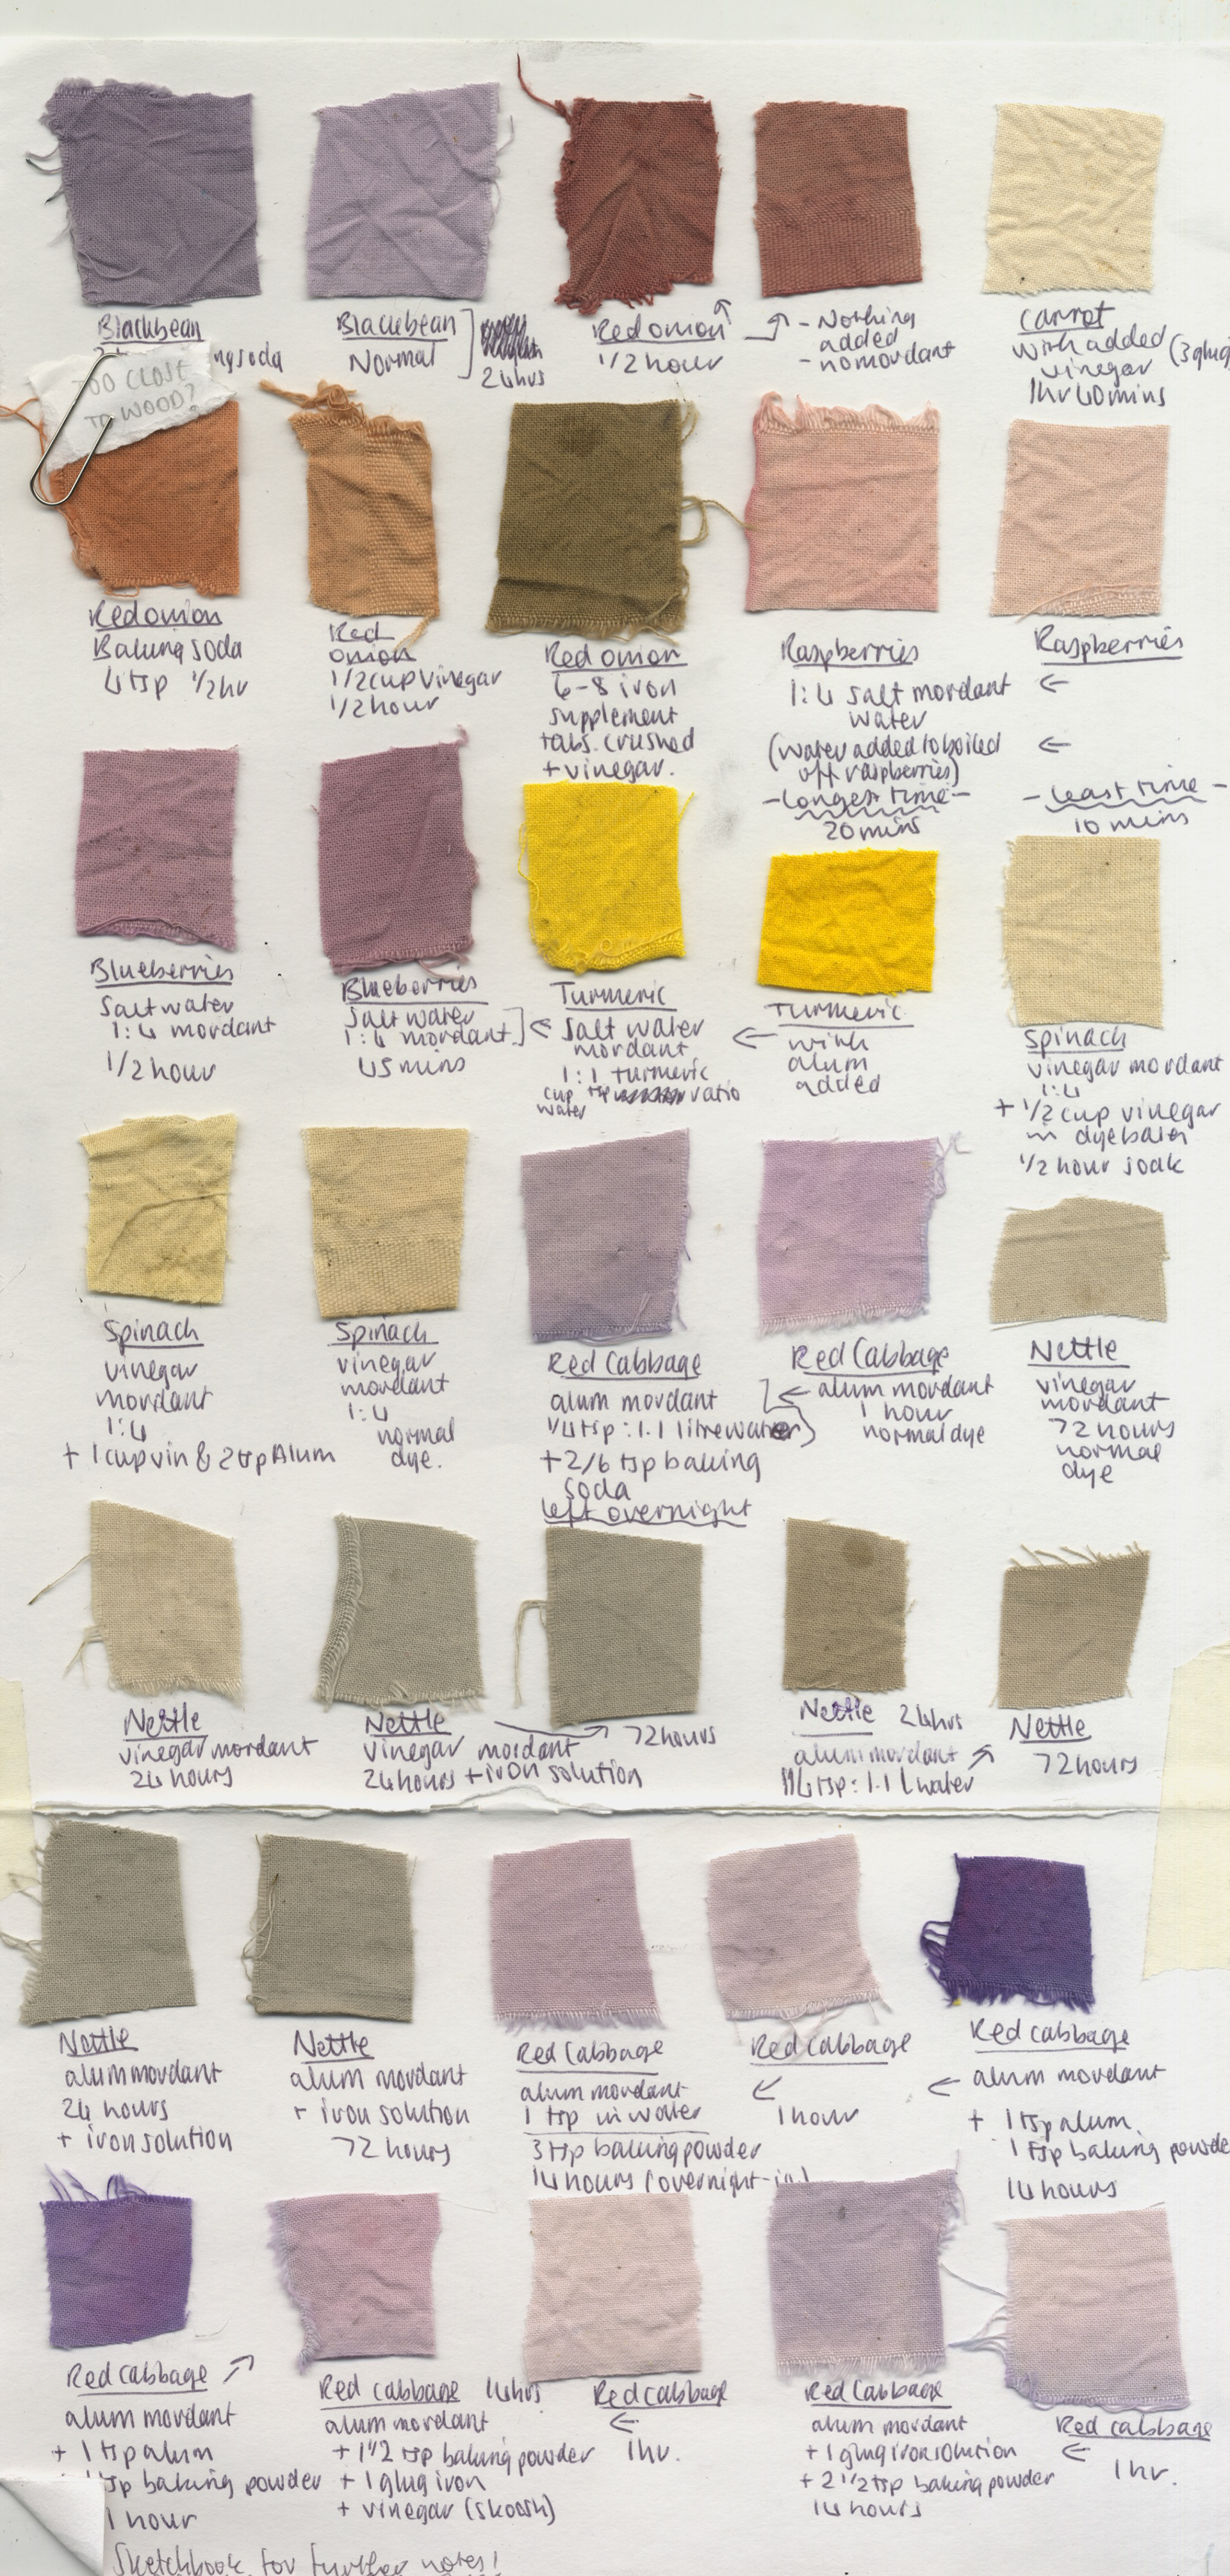 Blackbean
ng soda
TOO CLOSE
TO WOOD?
Blackbean
Normal
24hrs
Red onion
1/2 hour
- Nothing
added
- no mordant
Carrot
with added (3 glug
vinegar
1hr 40mins
Red onion
Baking soda
4tsp 1/2hr
Red
onion
1/2 cup vinegar
1/2 hour
Red onion
6-8 iron
supplement
tabs. crushed
+ vinegar.
Raspberries
1:4 salt mordant
water
(water added to boiled
off raspberries)
- longest time -
20 mins
Raspberries
←
←
- least time -
10 mins
Blueberries
Salt water
1:4 mordant
1/2 hour
Blueberries
salt water
1:4 mordant
45 mins
Turmeric
← salt water
mordant
1:1 turmeric
cup tsp ratio
water
Turmeric
← with
alum
added
Spinach
vinegar mordant
1:4
+ 1/2 cup vinegar
in dyebath
1/2 hour soak
Spinach
vinegar
mordant
1:4
+ 1 cup vin & 2tsp Alum
Spinach
vinegar
mordant
1:4
normal
dye.
Red Cabbage
alum mordant
1/4 tsp : 1.1 litre water
+ 2/6 tsp baking
soda
left overnight
Red Cabbage
← alum mordant
1 hour
normal dye
Nettle
vinegar
mordant
72 hours
normal
dye
Nettle
vinegar mordant
24 hours
Nettle
vinegar mordant
24 hours + iron solution
72 hours
Nettle 24hrs
alum mordant
1/4 tsp : 1.1 L water
Nettle
72 hours
Nettle
alum mordant
24 hours
+ iron solution
Nettle
alum mordant
+ iron solution
72 hours
Red Cabbage
alum mordant
1 tsp in water
3 tsp baking powder
14 hours (overnight
Red Cabbage
↙
1 hour
Red cabbage
← alum mordant
+ 1 tsp alum
1 tsp baking powde
14 hours
Red cabbage
alum mordant
+ 1 tsp alum
tsp baking powder
1 hour
Red cabbage 14hrs
alum mordant
+ 1 1/2 tsp baking powder
+ 1 glug iron
+ vinegar (skoosh)
Red cabbage
←
1hr.
Red Cabbage
alum mordant
+ 1 glug iron solution
+ 2 1/2 tsp baking powder
14 hours
Red cabbage
←
1 hr.
Sketchbook for further notes!